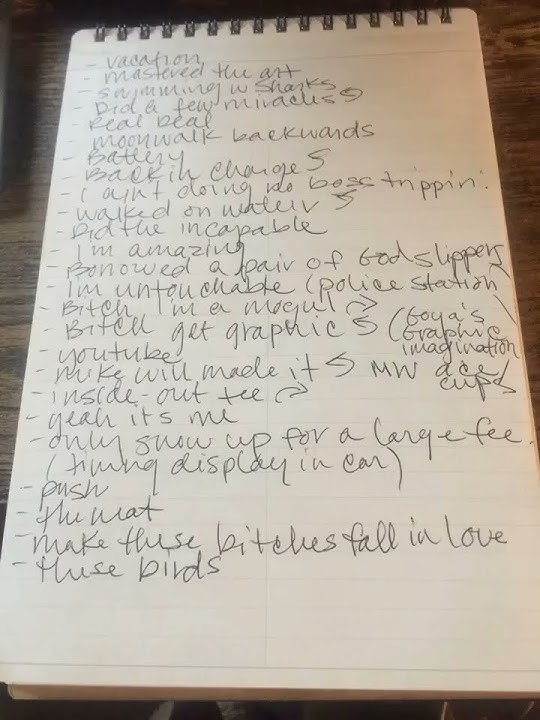 - vacation
- mastered the art
- swimming w sharks
- Did a few miracles
- Real Deal
- moonwalk backwards
- Battery
- Back in charge
- I ain't doing no boss trippin'.
- walked on water
- Did the incapable
- I'm amazing
- Borrowed a pair of God slippers
- I'm untouchable (police station)
- Bitch I'm a mogul
- Bitch get graphic (Goya's
Graphic
imagination
- youtube
- mike will made it MW ace/
cups
- inside-out tee
- yeah it's me
- only show up for a large fee.
(timing display in car)
- push
- the mat
- make these bitches fall in love
- these birds